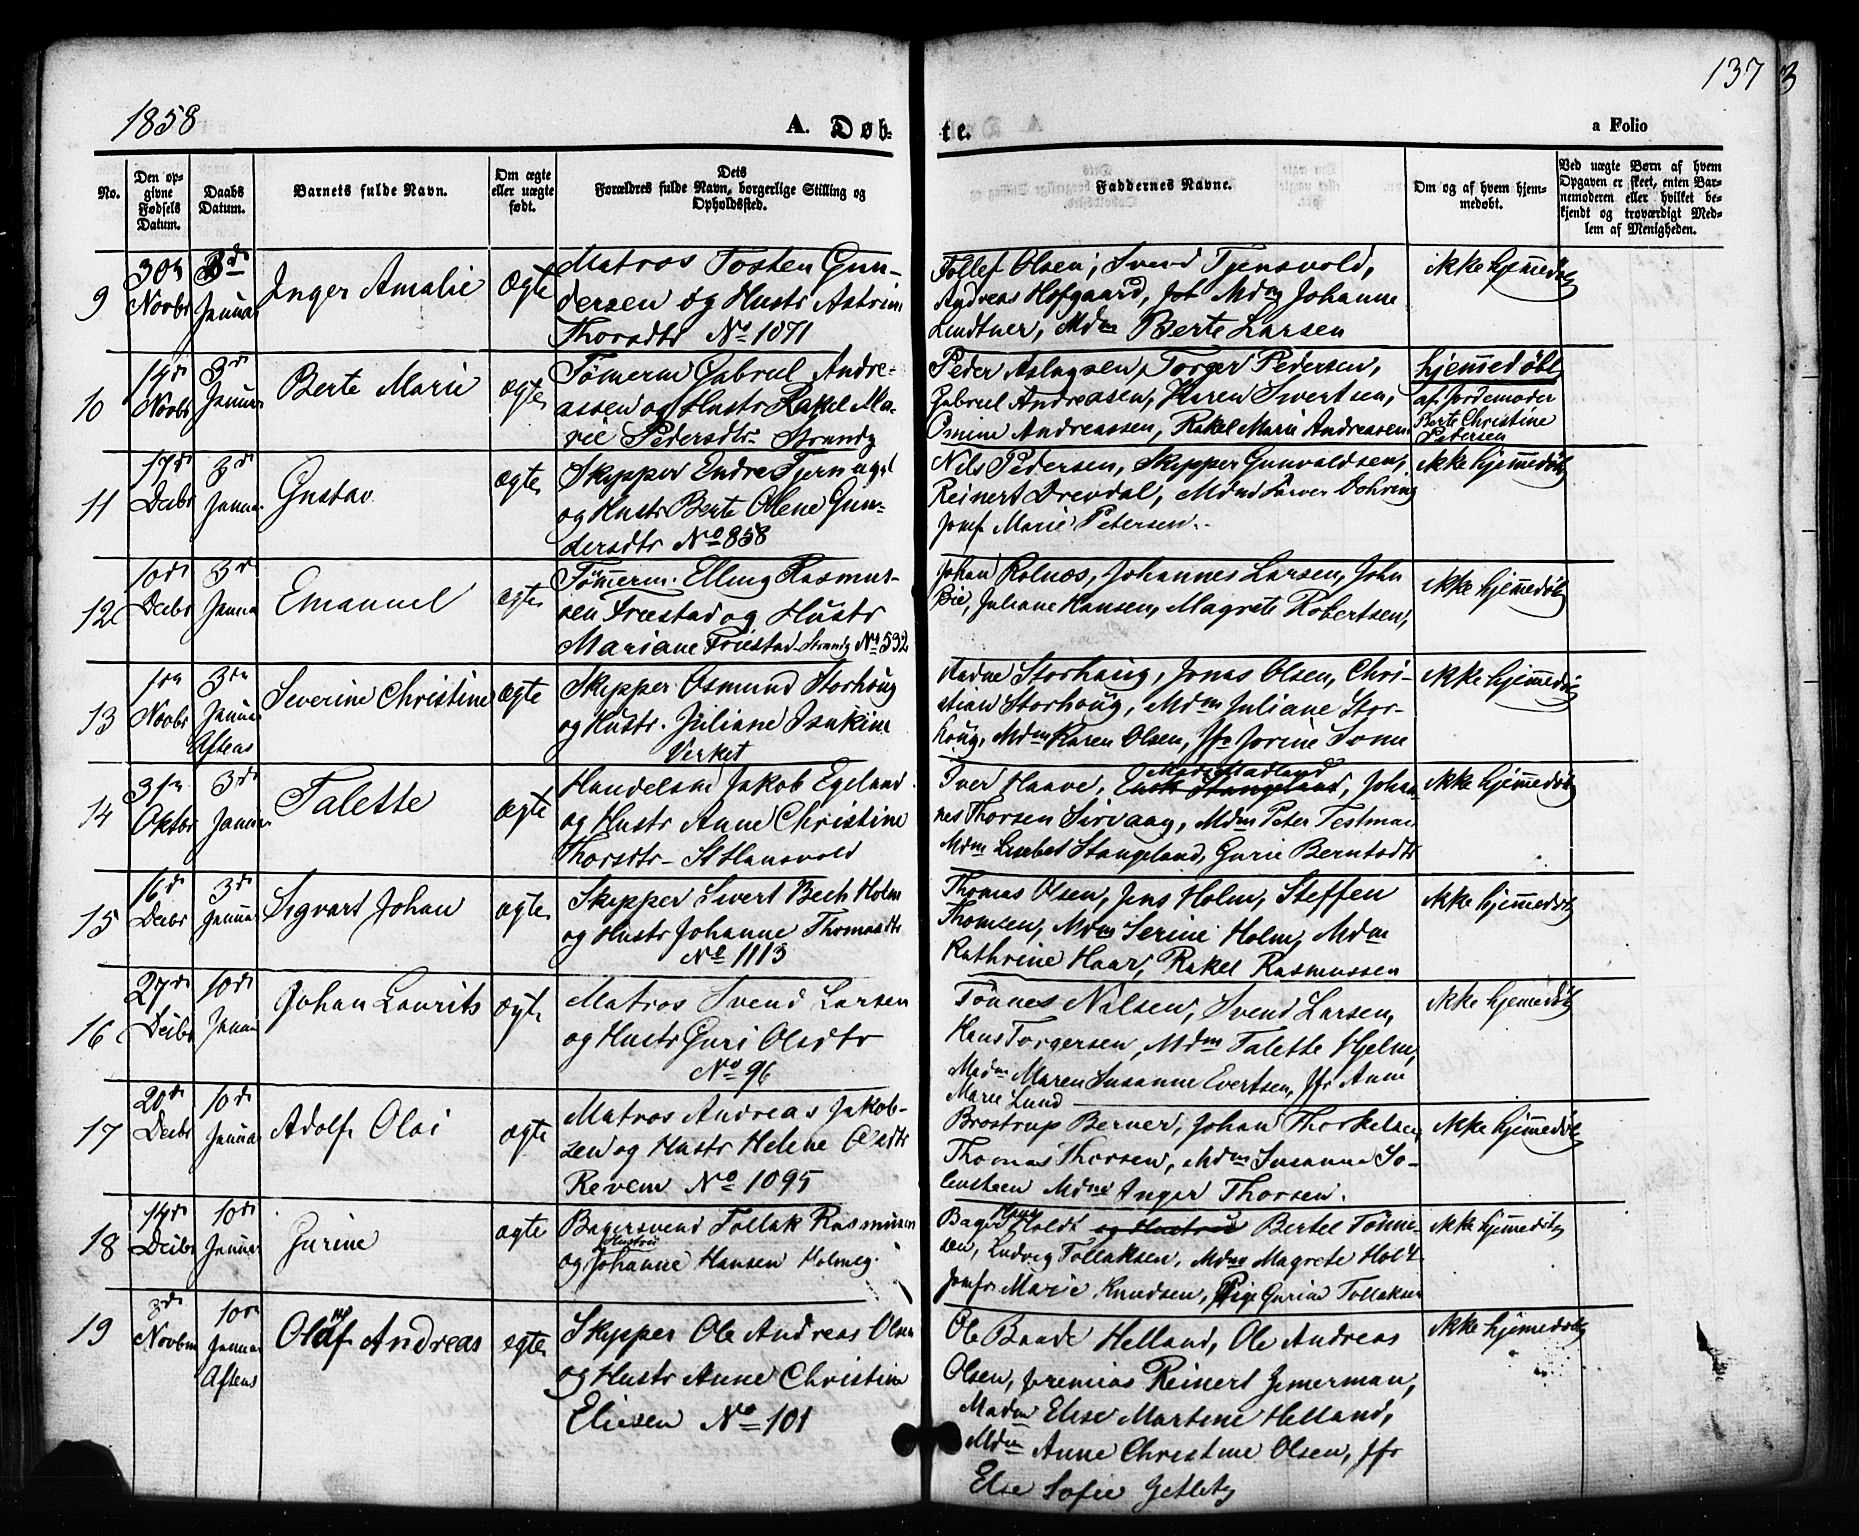 137
3
1858
A. Døb-
te.
a Folio
No.
Den op-
givne
Fødsels
Datum.
Daabs
Datum.
Barnets fulde Navn.
Om ægte
eller uægte
født.
Dets
Forældres fulde Navn, borgerlige Stilling og
Opholdssted.
Faddernes Navne.
Om og af hvem hjem-
medøbt.
Ved uægte Børn af hvem
Opgaven er skeet, enten Bar-
nemoderen eller hvilket be-
kjendt og troværdigt Med-
lem af Menigheden.
9
30n
Novbr
3de
Januar
Inger Amalie
Ægte
Matros Tosten Gun-
dersen og Hustr Astrine
Thorsdtr No 1071
Tollef Olsen, Svend Tjensvold,
Andreas Hofgaard, Mdm Johanne
Lindtner, Mdm Berte Larsen
ikke hjemmedøbt
10
14de
Novbr
3de
Januar
Berte Marie
ægte
Tømerm Gabriel Andre-
assen og Hustr Rakel Ma-
rie Pedersdtr Strandg
Peder Aslagsen, Torger Pedersen,
Gabriel Andreasen, Karen Sivertsen,
Omine Andreassen, Rakel Marie Andreasen
hjemmedøbt
af Jordemoder
Berte Christine
Pedersen
11
17de
Decbr
3de
Januar
Gustav
ægte
Skipper Endre Tjernagel
og Hustr Berte Olene Gun-
dersdtr No 858
Nils Pedersen, Skipper Gunvaldsen,
Reinert Drevdal, Mdm Farver Dohring
Jomf Marie Petersen
ikke hjemmedøbt
12
10de
Decbr
3de
Januar
Emanuel
egte
Tømmerm. Elling Rasmus-
sen Friestad og Hustr
Mariane Friestad Strandg No 532
Johan Rolnæs, Johannes Larsen, John
Bie, Juliane Hansen, Magrete Robertsen,
ikke hjemmedøbt
13
1n
Novbr
3de
Januar
Aftens
Severine Christine
ægte
Skipper Osmund Storhoug
og Hustr. Juliane Isakine
Verket
Aadne Storhaug, Jonas Olsen, Chri-
stian Storhoug, Mdm Juliane Stor-
houg, Mdm Karen Olsen, Jfr Jorine Some
ikke hjemmedøbt
14
31n
Oktbr
3de
Januar
Talette
ægte
Handelsm Jakob Egeland
og Hustr Anne Christine
Thorsdtr St Hansvold
Mads Madland
Iver Haave, Stangeland, Johan-
nes Thorsen Sirvaag, Mdm Peter Testman
Mdm Lisebet Stangeland, Gurie Berntsdtr
ikke hjemmedøbt
15
16de
Decbr
3de
Januar
Sigvart Johan
ægte
Skipper Sivert Bech Holm
og Hustr Johanne Thomasdtr
No 1113
Thomas Olsen, Jens Holm, Steffen
Thomsen, Mdm Serine Holm, Mdm
Kathrine Haar, Rakel Rasmussen
ikke hjemmedøbt
16
27de
Decbr
10de
Januar
Johan Laurits
ægte
Matros Svend Larsen
og Hustr Guri Olsdtr
No 96
Tønnes Nilsen, Svend Larsen,
Hans Torgersen, Mdm Talette Hjelm,
Madm Maren Susanne Evertsen, Jfr Anne
Marie Lund
ikke hjemedøbt
17
20de
Decbr
10de
Januar
Adolf Olai
ægte
Matros Andreas Jakob-
sen og Hustr Helene Olsdtr
Revem No 1095
Brostrup Berner, Johan Thorkelsen,
Thomas Thorsen, Mdm Susanne So-
lensteen Mdm Inger Thorsen.
ikke hjemmedøbt
18
14de
Decbr
10de
Januar
Gurine
ægte
Bagersvend Tollak Rasmusen
Hustru
og Johanne Hansen Holmeg.
Hans
Bager Holdt og Hustru Bertel Tønne-
sen, Ludvig Tollaksen, Mdm Magrete Holdt
Jomfr Marie Knudsen, Pige Gurine Tollaksen
ikke hjemedøbt
19
3de
Novbr
10de
Januar
Aftens
Oluf Andreas
egte
Skipper Ole Andreas Olsen
og Hustr Anne Christine
Eliesen No 101
Ole Baade Helland, Ole Andreas
Olsen, Jeremias Reinert Jemerman,
Madm Elise Martine Helland,
Mdm Anne Christine Olsen, Jfr
Else Sofie Jetletz
ikke hjemedøbt